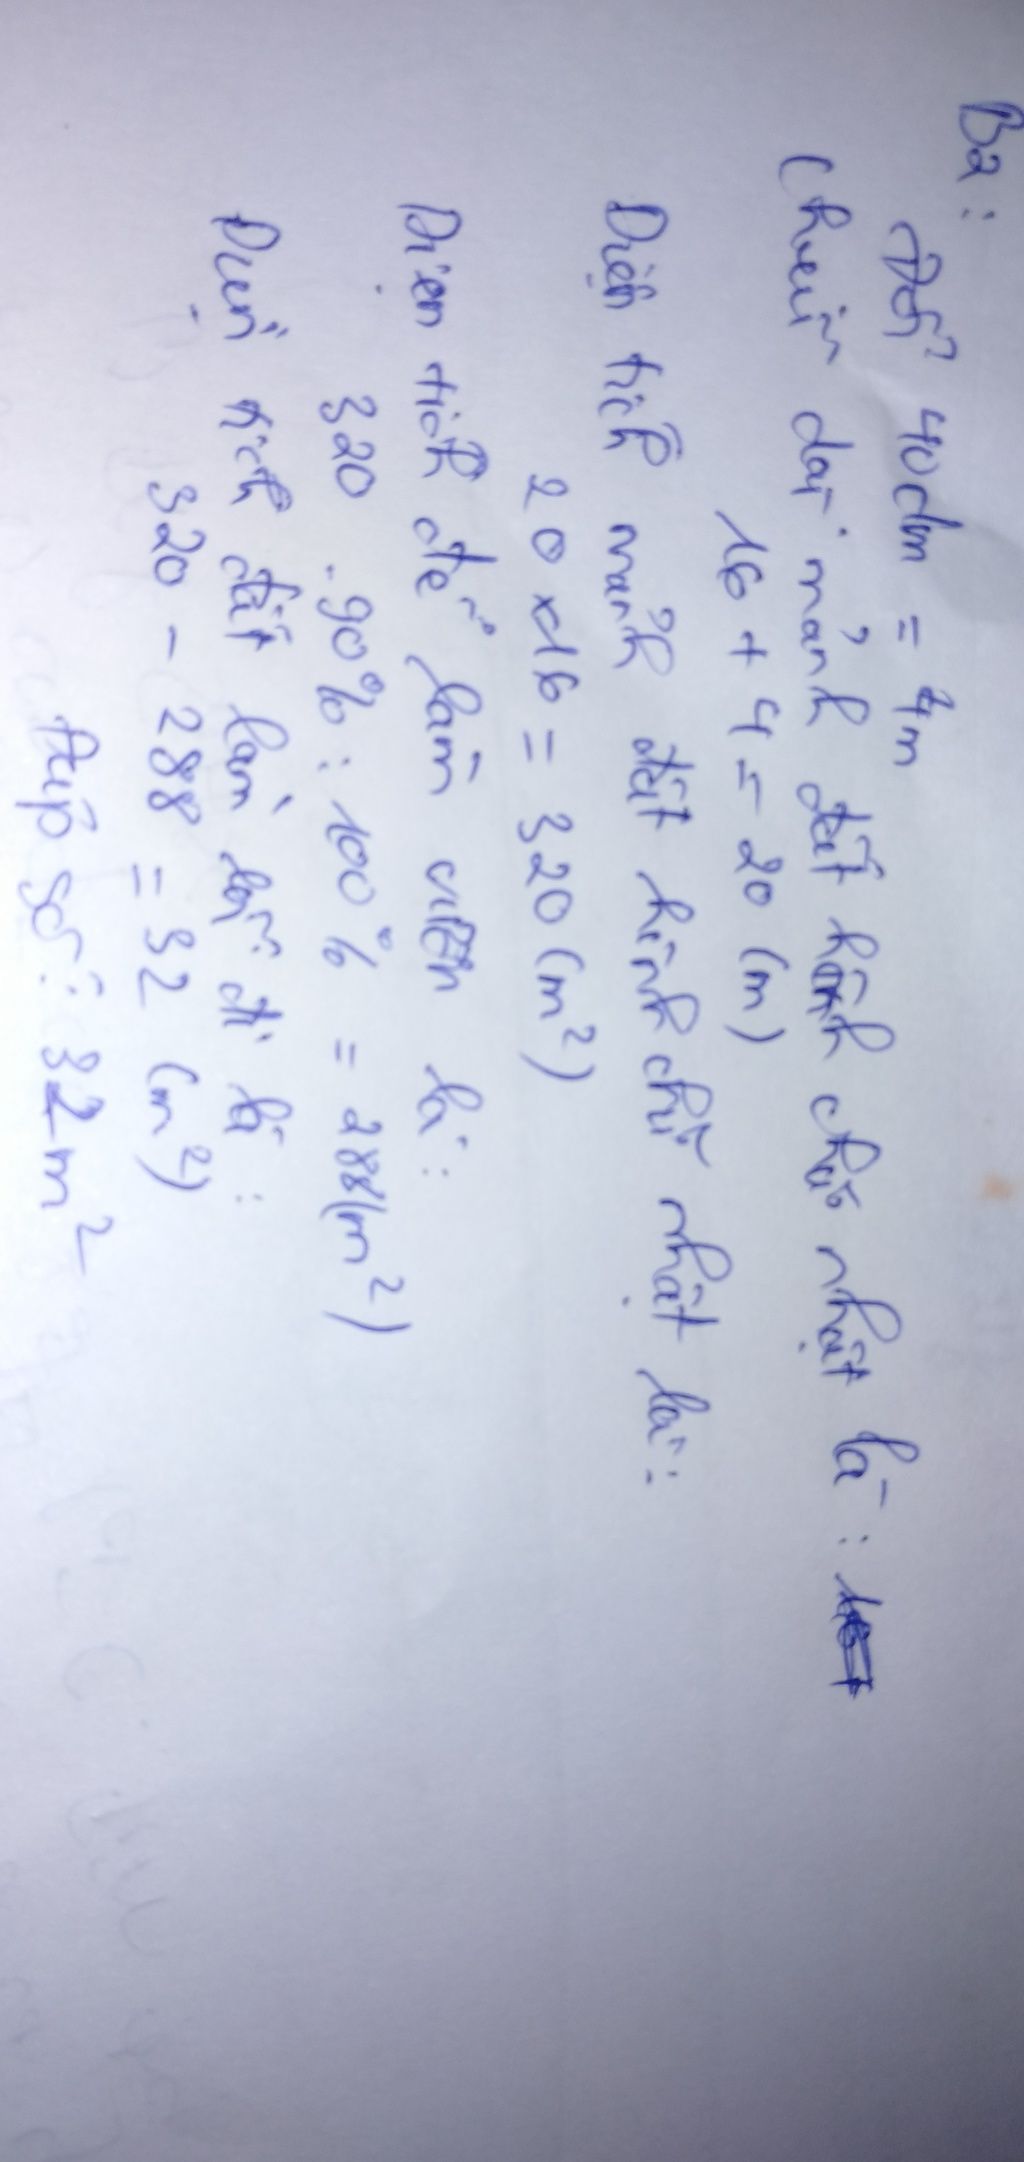 B2:
Đổi 40dm = 4m
Chiều dài mảnh đất hình chữ nhật là:
16 + 4 = 20 (m)
Diện tích mảnh đất hình chữ nhật là:
20 x 16 = 320 (m²)
Diện tích để làm vườn là:
320 . 90% : 100% = 288 (m²)
Diện tích đất làm lối đi là:
320 - 288 = 32 (m²)
Đáp số: 32 m²